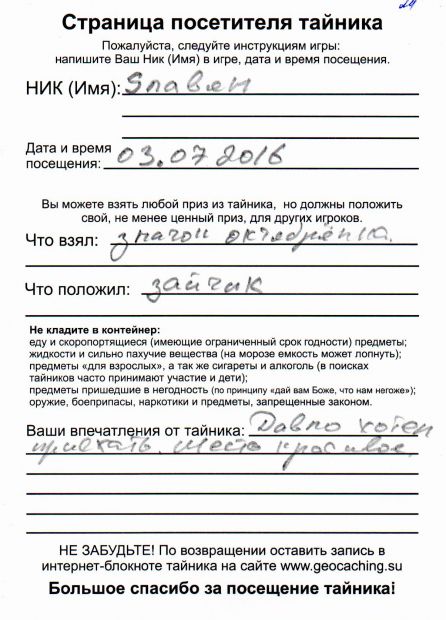 24
Страница посетителя тайника
Пожалуйста, следуйте инструкциям игры:
напишите Ваш Ник (Имя) в игре, дата и время посещения.
НИК (Имя):
Дата и время
посещения: 03.07 2016
Вы можете взять любой приз из тайника, но должны положить
свой, не менее ценный приз, для других игроков.
Что взял: значок октябрёнка.
Что положил: зайчик
Не кладите в контейнер:
еду и скоропортящиеся (имеющие ограниченный срок годности) предметы;
жидкости и сильно пахучие вещества (на морозе емкость может лопнуть);
предметы «для взрослых», а так же сигареты и алкоголь (в поисках
тайников часто принимают участие и дети);
предметы пришедшие в негодность (по принципу «дай вам Боже, что нам негоже»);
оружие, боеприпасы, наркотики и предметы, запрещенные законом.
Ваши впечатления от тайника: Давно хотел
приехать. Место красивое.
НЕ ЗАБУДЬТЕ! По возвращении оставить запись в
интернет-блокноте тайника на сайте www.geocaching.su
Большое спасибо за посещение тайника!